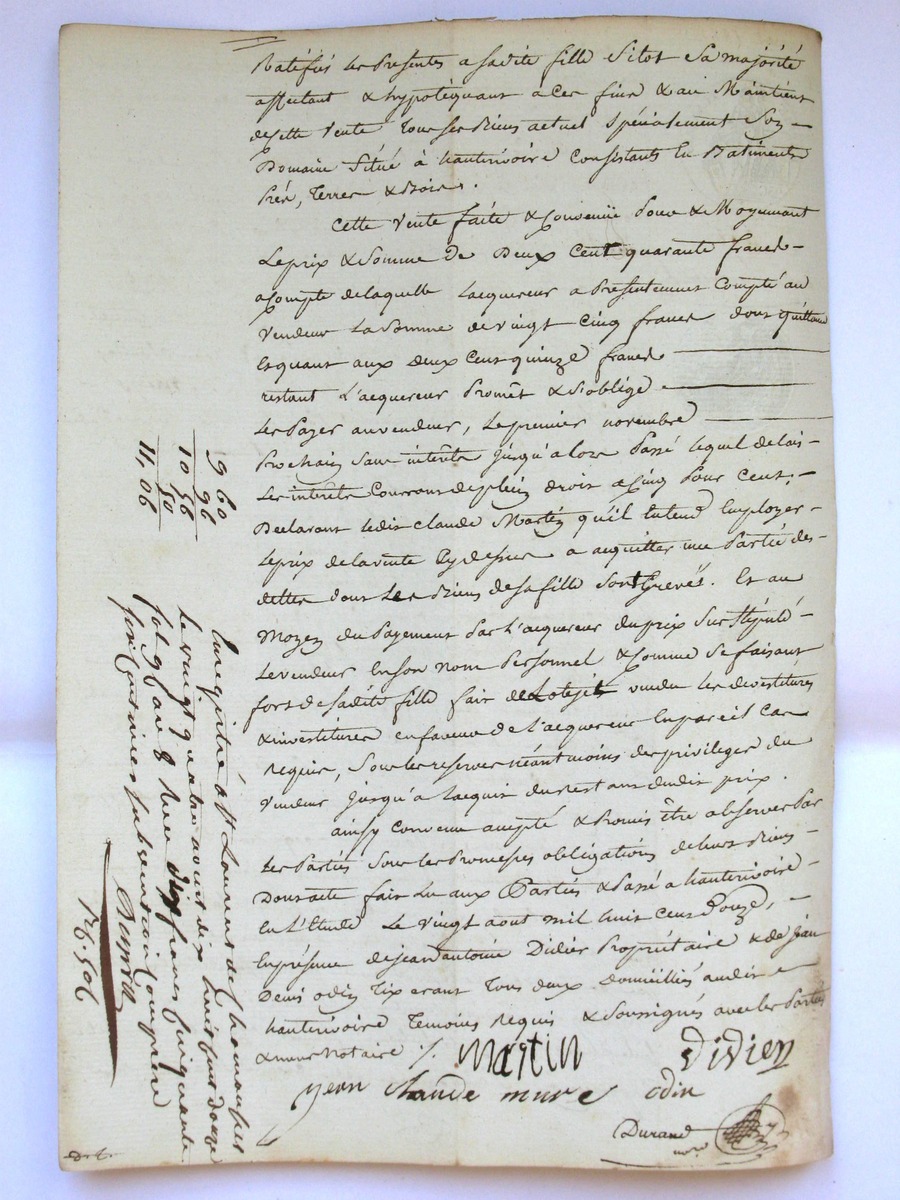 Ratéfiés les Presentes a sadite fille Sitot Sa majorité
affectant & hypotéquant à ces fins & au Maintient
de cette Vente Tous ses Biens actuel Spécialement Son
Domaine Situé à hauterivoire Consistants En Batiments
Prés, Terres & Bois.
Cette Vente faite & Convenüe pour & Moyennant
Le prix & Somme de Deux Cent quarante francs
a Compte de laquelle Lacquereur a Présentement Compté au
Vendeur La Somme de vingt Cinq francs dont quittance
Et quant aux Deux Cent quinze francs
restant L'acquereur Promêt & S'oblige
Les Payer au vendeur, Le premier novembre
Prochain Sans intérêts jusqu'a lors Passé lequel delais
Les intérêts Courront de plein droit a Cinq Pour Cent,
Declarant ledit Claude Martin qu'il Entend Employer
Le prix de la vente Cy dessus a acquitter une Partie des
dettes dont Les Biens de sa fille Sont Grevés. Et au
Moyen du Payement Par L'acquereur du prix Sus Stipulé
Le vendeur En son nom Personnel & Comme Se faisant
fort de sadite fille fait de L'objet vendu les devestitures
& investitures en faveur de l'acquereur En pareil Cas
Requis, Sous les reserves néantmoins des privileges du
Vendeur jusqu'a Lacquit du restant dudit prix.
ainsy Convenu accepté & Promis être observer Par
Les Parties Sous les Promesses obligations de leurs Biens
Dont acte fait Lu aux Parties & Passé a hauterivoire
En L'Etude Le vingt aout mil huit Cent Douze,
En présence de jean antoine Didier Propriétaire & de jean
Denis odin Tixerant Tous deux Domicilliés audit
hauterivoire Temoins Requis & Soussignés avec les Parties
& nous Notaire ./.
Martin Didier
jean Claude mure odin
Durand
nore
9 60
96
10 56
50
11,06
Enregistré à St Laurent de Chamousset
le vingt quatre aout dix huit cent douze
fol 9 bau 8 Recu dix francs cinquante
six centimes subvention comprise
Rg. 506